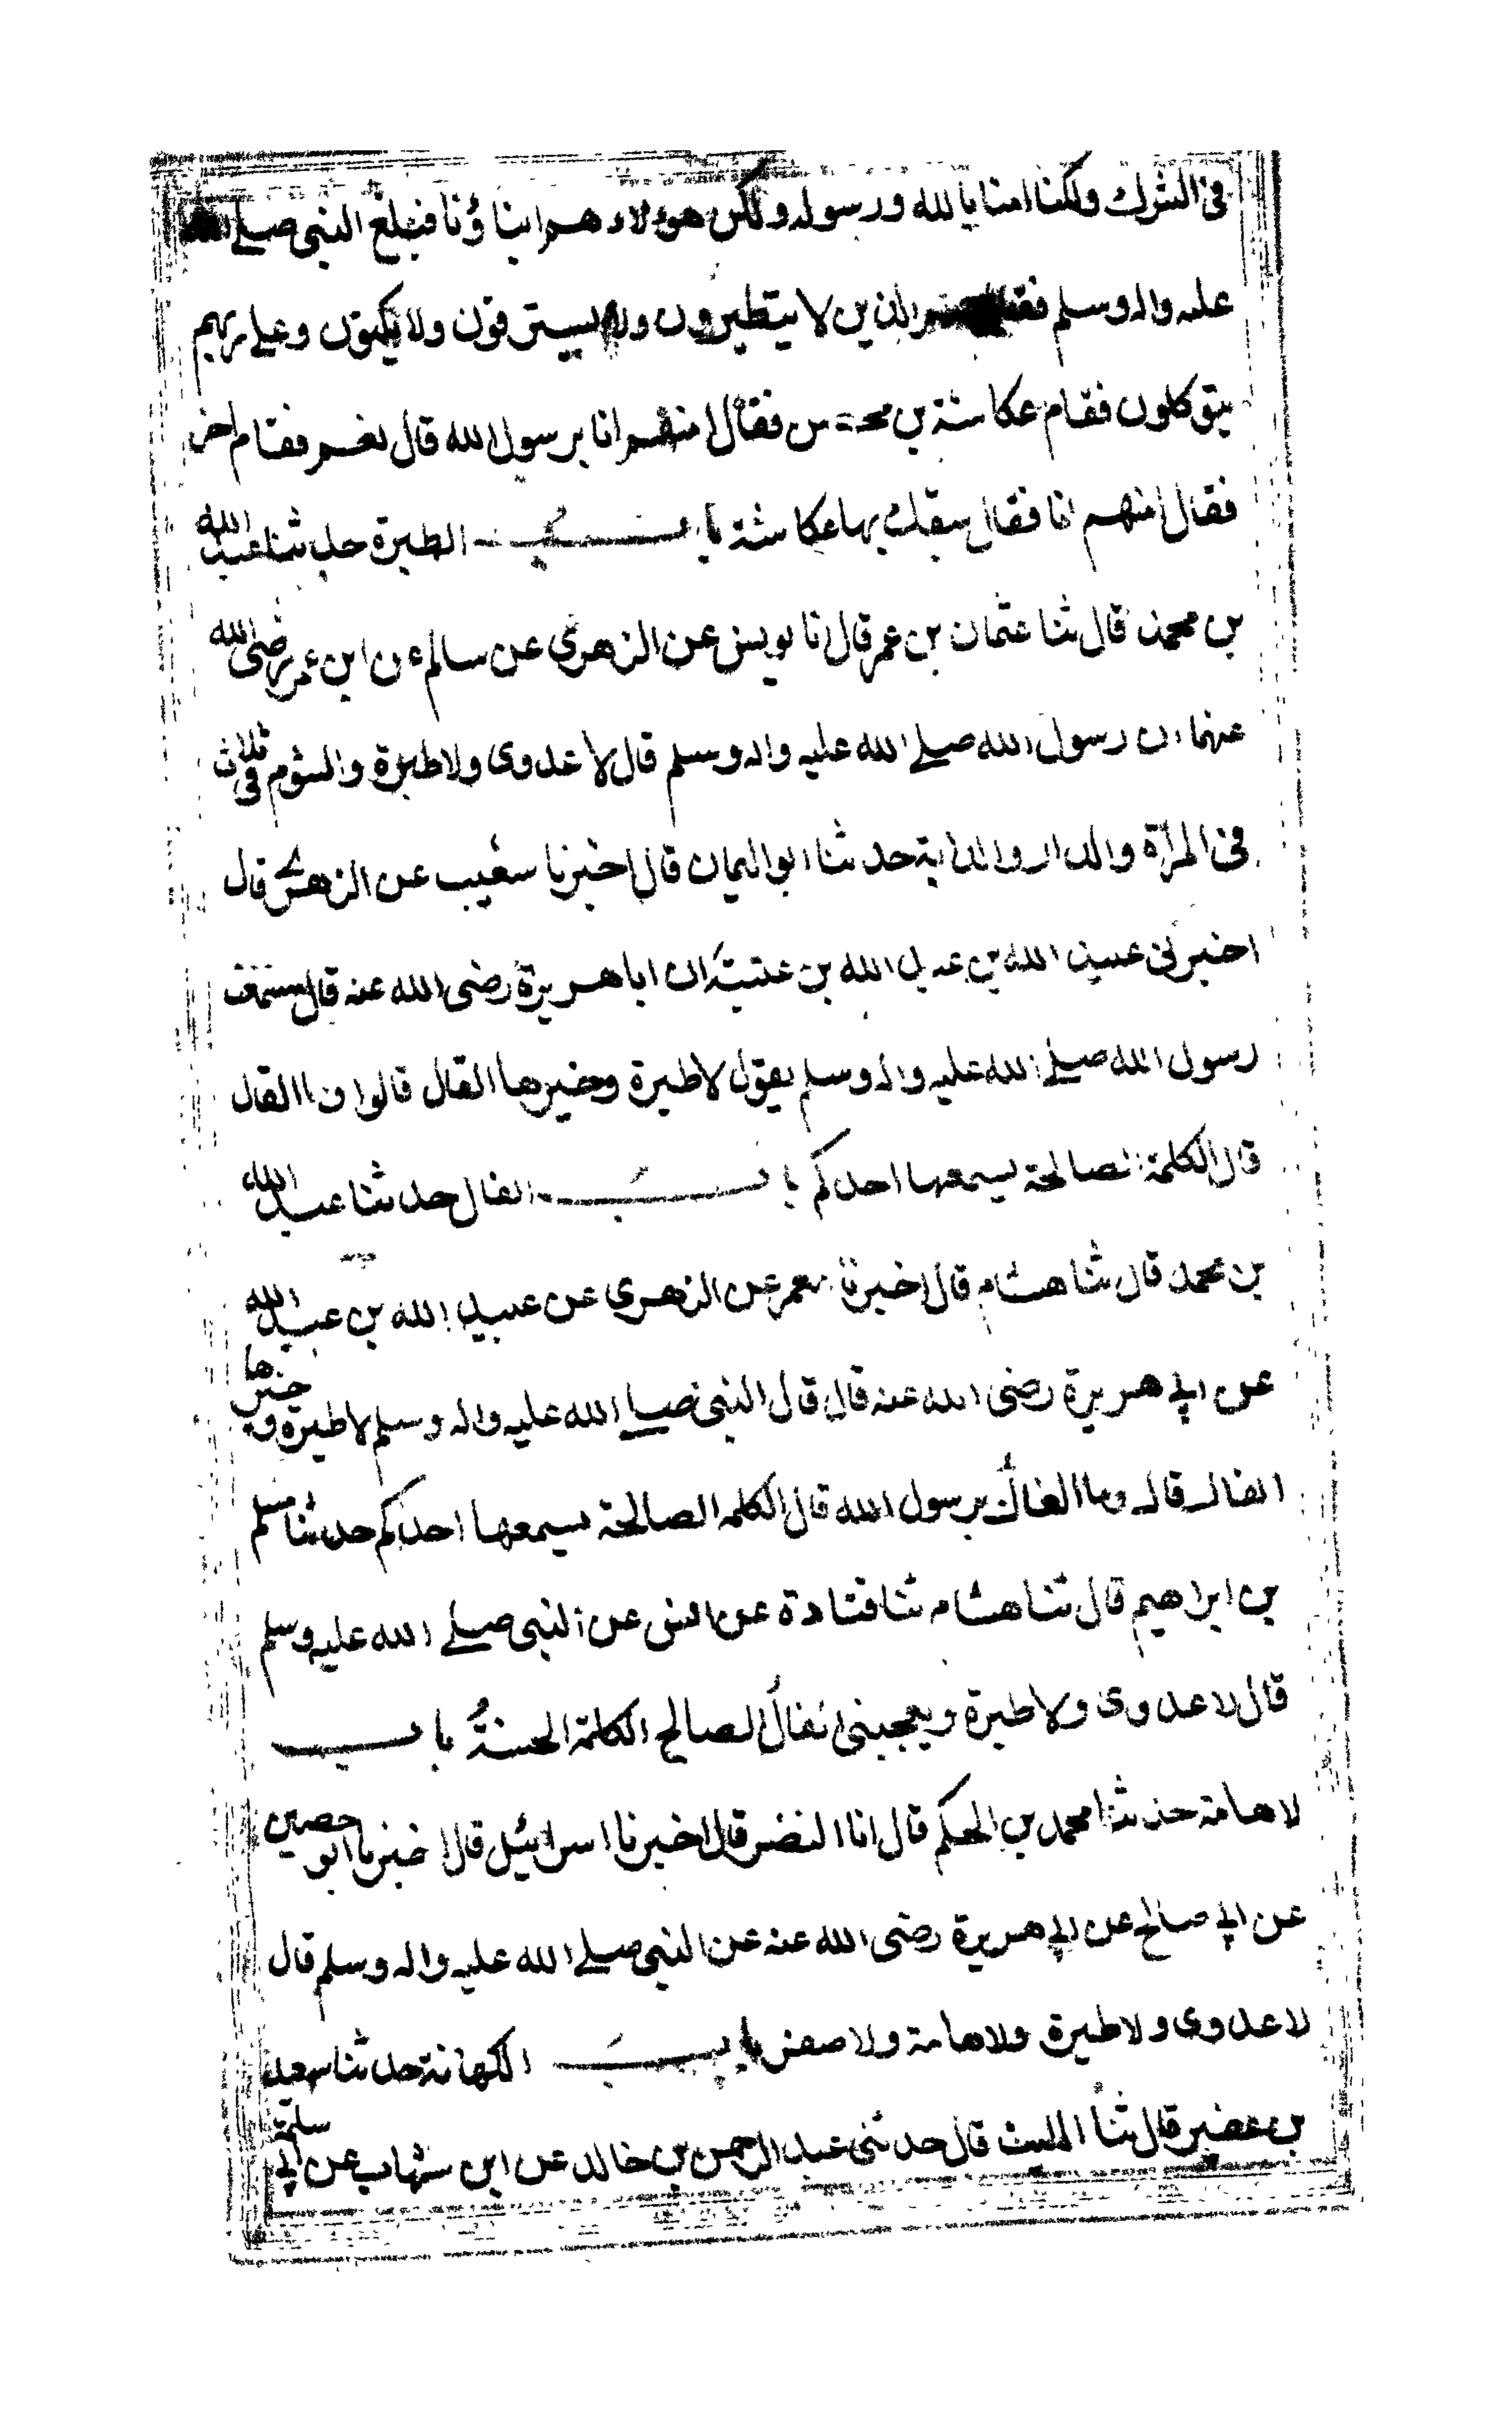 في الشرك ولكنا امنا بالله ورسوله ولكن هولاء هم ابناؤنا فبلغ النبي صلى الله
عليه واله وسلم فقال هم الذين لا يتطيرون ولا يسترقون ولا يكتوون وعلى ربهم
يتوكلون فقام عكاشة بن محصن فقال امنهم انا يرسول الله قال نعم فقام اخر
فقال امنهم انا فقال سبقك بها عكاشة باب الطيرة حدثنا عبد الله
بن محمد قال ثنا عثمان بن عمر قال انا يونس عن الزهري عن سالم عن ابن عمر رضى الله
عنهما ان رسول الله صلى الله عليه واله وسلم قال لا عدوى ولا طيرة والشؤم في ثلاث
في المرأة والدار والدابة حدثنا ابو اليمان قال اخبرنا شعيب عن الزهري قال
اخبرني عبيد الله بن عبد الله بن عتبة ان ابا هريرة رضى الله عنه قال سمعت
رسول الله صلى الله عليه واله وسلم يقول لا طيرة وخيرها الفال قالوا وما الفال
قال الكلمة الصالحة يسمعها احدكم باب الفال حدثنا عبد الله
بن محمد قال ثنا هشام قال اخبرنا معمر عن الزهري عن عبيد الله بن عبد الله
عن ابي هريرة رضى الله عنه قال قال النبي صلى الله عليه واله وسلم لا طيرة وخيرها
الفال قال وما الفال يرسول الله قال الكلمة الصالحة يسمعها احدكم حدثنا مسلم
بن ابراهيم قال ثنا هشام ثنا قتادة عن انس عن النبي صلى الله عليه وسلم
قال لا عدوى ولا طيرة ويعجبني الفال الصالح الكلمة الحسنة باب
لا هامة حدثنا محمد بن الحكم قال انا النضر قال اخبرنا اسرائيل قال اخبرنا ابو حصين
عن ابي صالح عن ابي هريرة رضى الله عنه عن النبي صلى الله عليه واله وسلم قال
لا عدوى ولا طيرة ولا هامة ولا صفر باب الكهانة حدثنا سعيد
بن عفير قال ثنا الليث قال حدثني عبد الرحمن بن خالد عن ابن شهاب عن ابي سلمة